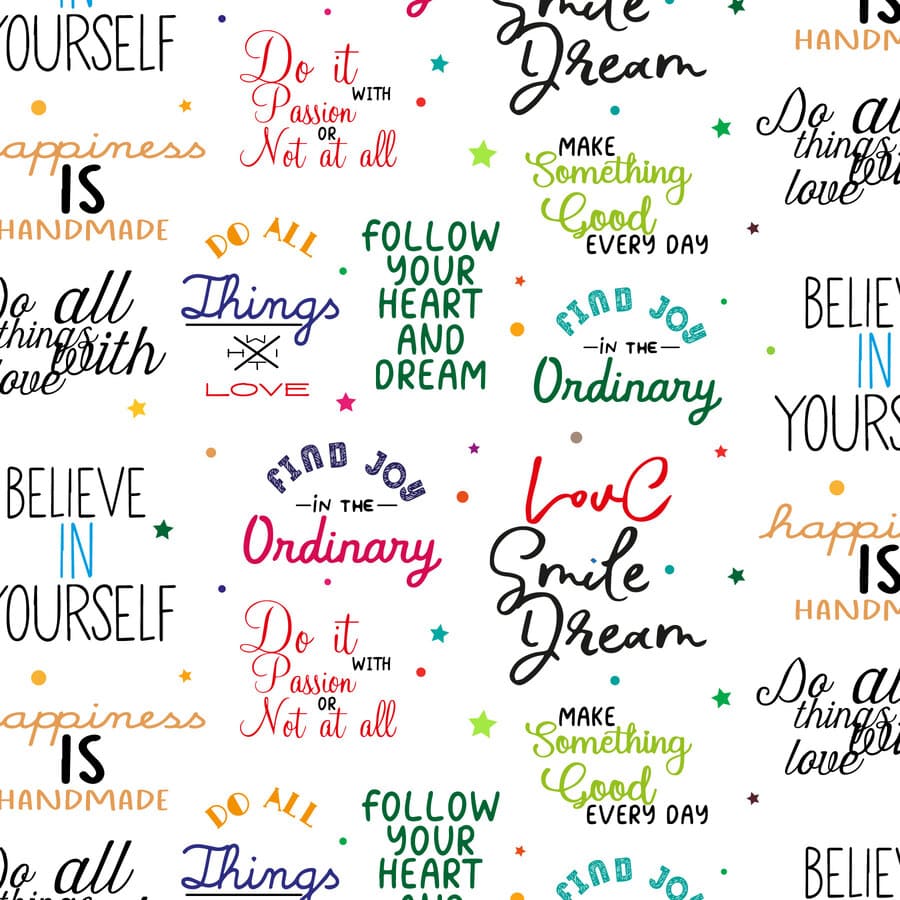 IN
YOURSELF
Do it
WITH
Passion
OR
Not at all
Smile
Dream
IS
HANDM
appiness
IS
HANDMADE
MAKE
Something
Good
EVERY DAY
Do al
things
love
Do all
things
with
love
DO ALL
Things
WITH
LOVE
FOLLOW
YOUR
HEART
AND
DREAM
FIND JOY
IN THE
Ordinary
BELIEV
IN
YOURS
BELIEVE
IN
YOURSELF
FIND JOY
IN THE
Ordinary
Love
Smile
Dream
happi
IS
HANDM
appiness
IS
HANDMADE
Do it
WITH
Passion
OR
Not at all
MAKE
Something
Good
EVERY DAY
Do al
things
love
Do all
DO ALL
Things
FOLLOW
YOUR
HEART
FIND JOY
BELIEV